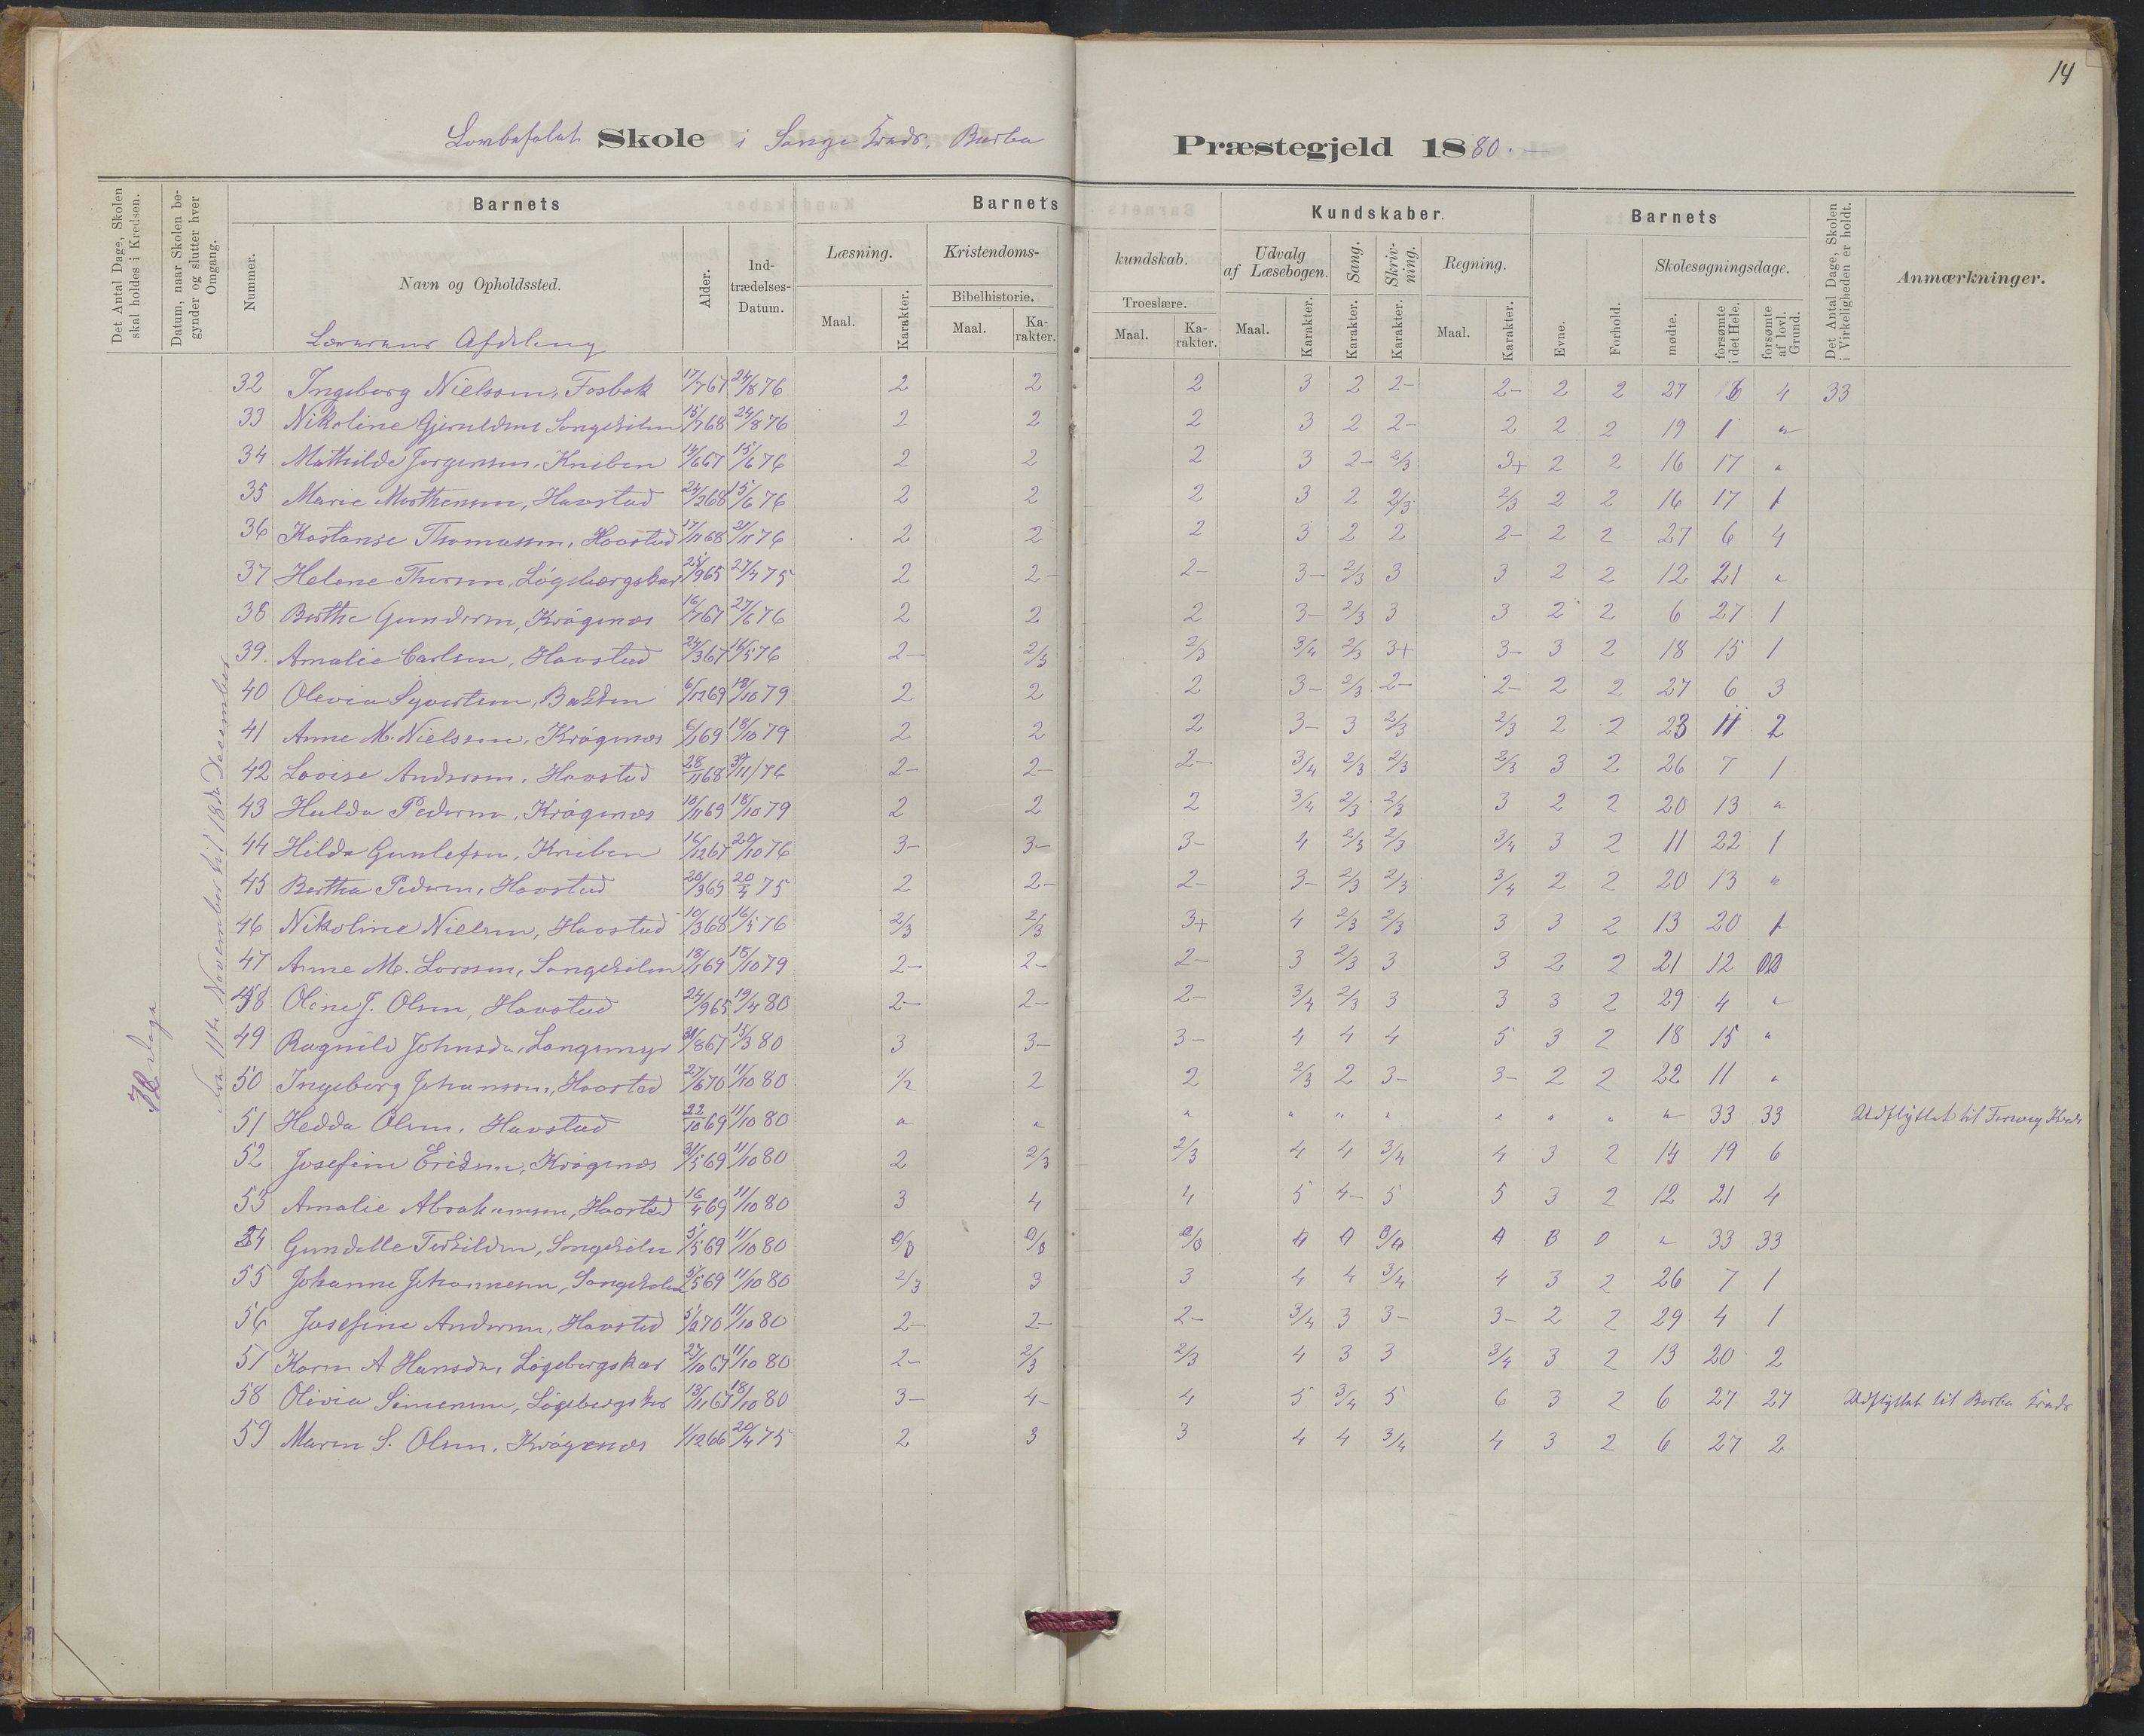 14
Skole i Songe Kreds, Barbu Præstegjeld 1880.
Det Antal Dage, Skolen skal holdes i Kredsen.
Datum, naar Skolen begynder og slutter hver Omgang.
Barnets
Nummer.
Navn og Opholdssted.
Alder.
Indtrædelses-Datum.
Barnets Kundskaber.
Læsning.
Maal. Karakter.
Kristendomskundskab.
Bibelhistorie.
Maal. Karakter.
Troeslære.
Maal. Karakter.
Udvalg af Læsebogen.
Maal. Karakter.
Sang.
Karakter.
Skrivning.
Karakter.
Regning.
Maal. Karakter.
Barnets
Evne.
Forhold.
Skolesøgningsdage.
mødte.
forsømte i det Hele.
forsømte af lovl. Grund.
Det Antal Dage, Skolen i Virkeligheden er holdt.
Anmærkninger.
Afdeling
Dage
fra 11te November til 18de December
32 Ingeborg Nielsen, Fosbæk 17/7 67 24/8 76 2 2 2 3 2 2- 2- 2 2 27 6 4 33
33 Nikoline Gjeruldsen Songekilen 15/7 68 24/8 76 2 2 2 3 2 2- 2 2 2 19 1 "
34 Mathilde Jørgensen, Kniben 14/6 67 15/6 76 2 2 2 3 2- 2/3 3+ 2 2 16 17 "
35 Marie Morthensen, Havstad 24/2 68 15/6 76 2 2 2 3 2 2/3 2/3 2 2 16 17 1
36 Kostanse Thomassen, Havstad 17/11 68 21/11 76 2 2 2 3 2 2 2- 2 2 27 6 4
37 Helene Thorsen, Løgebergskar 25/9 65 27/4 75 2 2- 2- 3- 2/3 3 3 2 2 12 21 "
38 Berthe Gundersen, Krøgenæs 16/7 67 27/6 76 2 2 2 3- 2/3 3 3 2 2 6 27 1
39. Amalie Carlsen, Havstad 24/3 67 16/5 76 2- 2/3 2/3 3/4 2/3 3+ 3- 3 2 18 15 1
40 Olevia Syvertsen, Bakken 6/12 69 18/10 79 2 2 2 3- 2/3 2- 2- 2 2 27 6 3
41 Anne M. Nielsen, Krøgenæs 6/1 69 18/10 79 2 2 2 3- 3 2/3 2/3 2 2 23 11 2
42 Lovise Andersen, Havstad 28/11 68 30/11/76 2- 2- 2- 3/4 2/3 2/3 2/3 3 2 26 7 1
43 Hulda Pedersen, Krøgenæs 10/11 69 18/10 79 2 2 2 3/4 2/3 2/3 3 2 2 20 13 "
44 Hilda Gunlefsen, Kniben 16/12 67 20/10 76 3- 3- 3- 4 2/3 2/3 3/4 3 2 11 22 1
45 Bertha Pedersen, Havstad 20/3 69 20/4 75 2 2- 2- 3- 2/3 2/3 3/4 2 2 20 13 "
46 Nikoline Nielsen, Havstad 10/3 68 16/5 76 2/3 2/3 3+ 4 2/3 2/3 3 3 2 13 20 1
47 Anne M. Larssen, Songekilen 18/1 69 18/10 79 2- 2- 2- 3 2/3 3 3 2 2 21 12
48 Oline J. Olsen, Havstad 24/9 65 19/4 80 2- 2- 2- 3/4 2/3 3 3 3 2 29 4 "
49 Ragnild Johnsdtr, Langemyr 30/8 67 15/3 80 3 3- 3- 4 4 4 5 3 2 18 15 "
50 Ingeborg Johansen, Havstad 27/6 70 11/10 80 1/2 2 2 2/3 2 3- 3- 2 2 22 11 "
51 Hedda Olsen, Havstad 22/10 69 11/10 80 " " " " " " " " " " 33 33 Udflyttet til Kreds
52 Josefine Eriksen, Krøgenæs 31/5 69 11/10 80 2 2/3 2/3 4 4 3/4 4 3 2 14 19 6
53 Amalie Abrahamsen, Havstad 16/4 69 11/10 80 3 4 4 5 4- 5 5 3 2 12 21 4
54 Gundelle Terkildsen, Songekilen 5/5 69 11/10 80 0/0 0/0 0/0 0 0 0/0 0 0 0 " 33 33
55 Johanne Johannesen, Songekilen 5/5 69 11/10 80 2/3 3 3 4 4 3/4 4 3 2 26 7 1
56 Josefine Andersen, Havstad 5/2 70 11/10 80 2- 2- 2- 3/4 3 3- 3- 2 2 29 4 1
57 Karen A Hansdtr, Løgebergskar 27/10 67 11/10 80 2- 2/3 2/3 4 3 3 3/4 3 2 13 20 2
58 Olivia Simensen, Løgebergskar 13/11 67 18/10 80 3- 4- 4 5 3/4 5 6 3 2 6 27 27 Udflyttet til Barbu Kreds
59 Maren S. Olsen, Krøgenæs 1/12 66 20/4 75 2 3 3 4 4 3/4 4 3 2 6 27 2